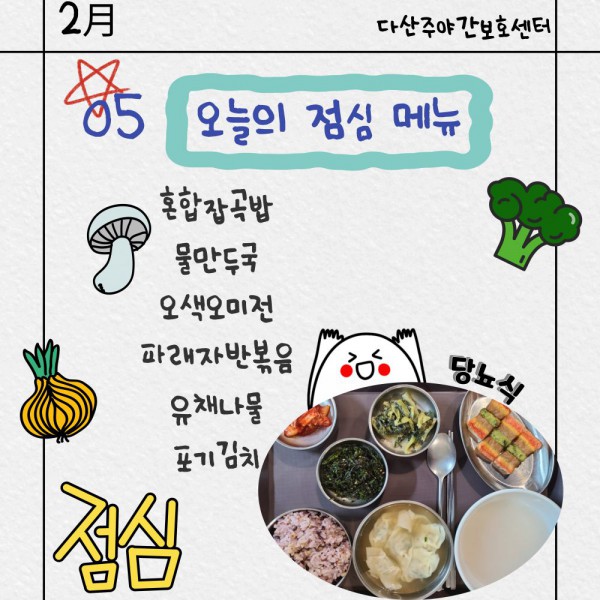 2月
다산주야간보호센터
05
오늘의 점심 메뉴
혼합잡곡밥
물만두국
오색오미전
파래자반볶음
유채나물
포기김치
당뇨식
점심